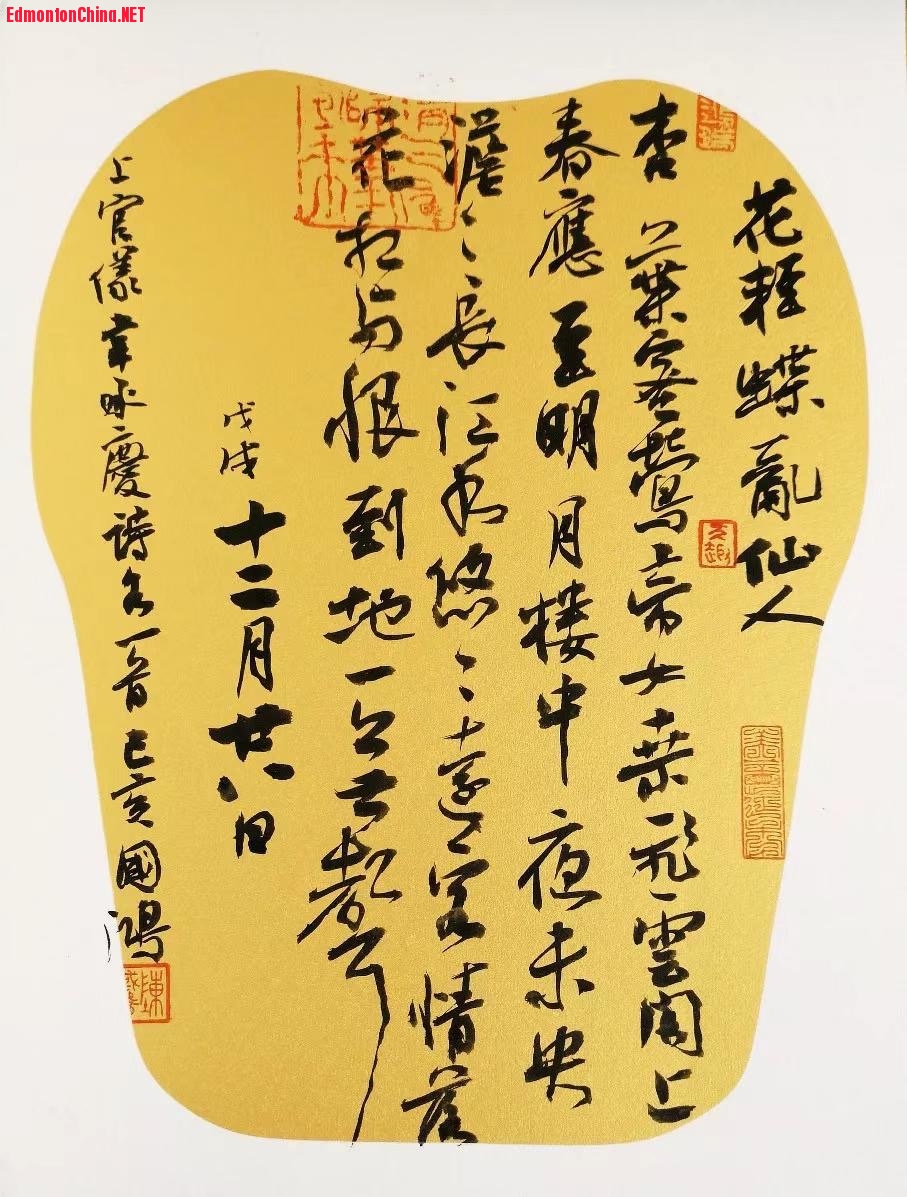 EdmontonChina.NET
花輕蝶亂仙人
杏葉密鶯帝女桑飛雲閣上
春應至明月樓中夜未央
澹〻長江水悠〻遠客情落
花相與恨到地一無聲
戊戌十二月廿八日
上官儀韋承慶詩各一首己亥國鴻